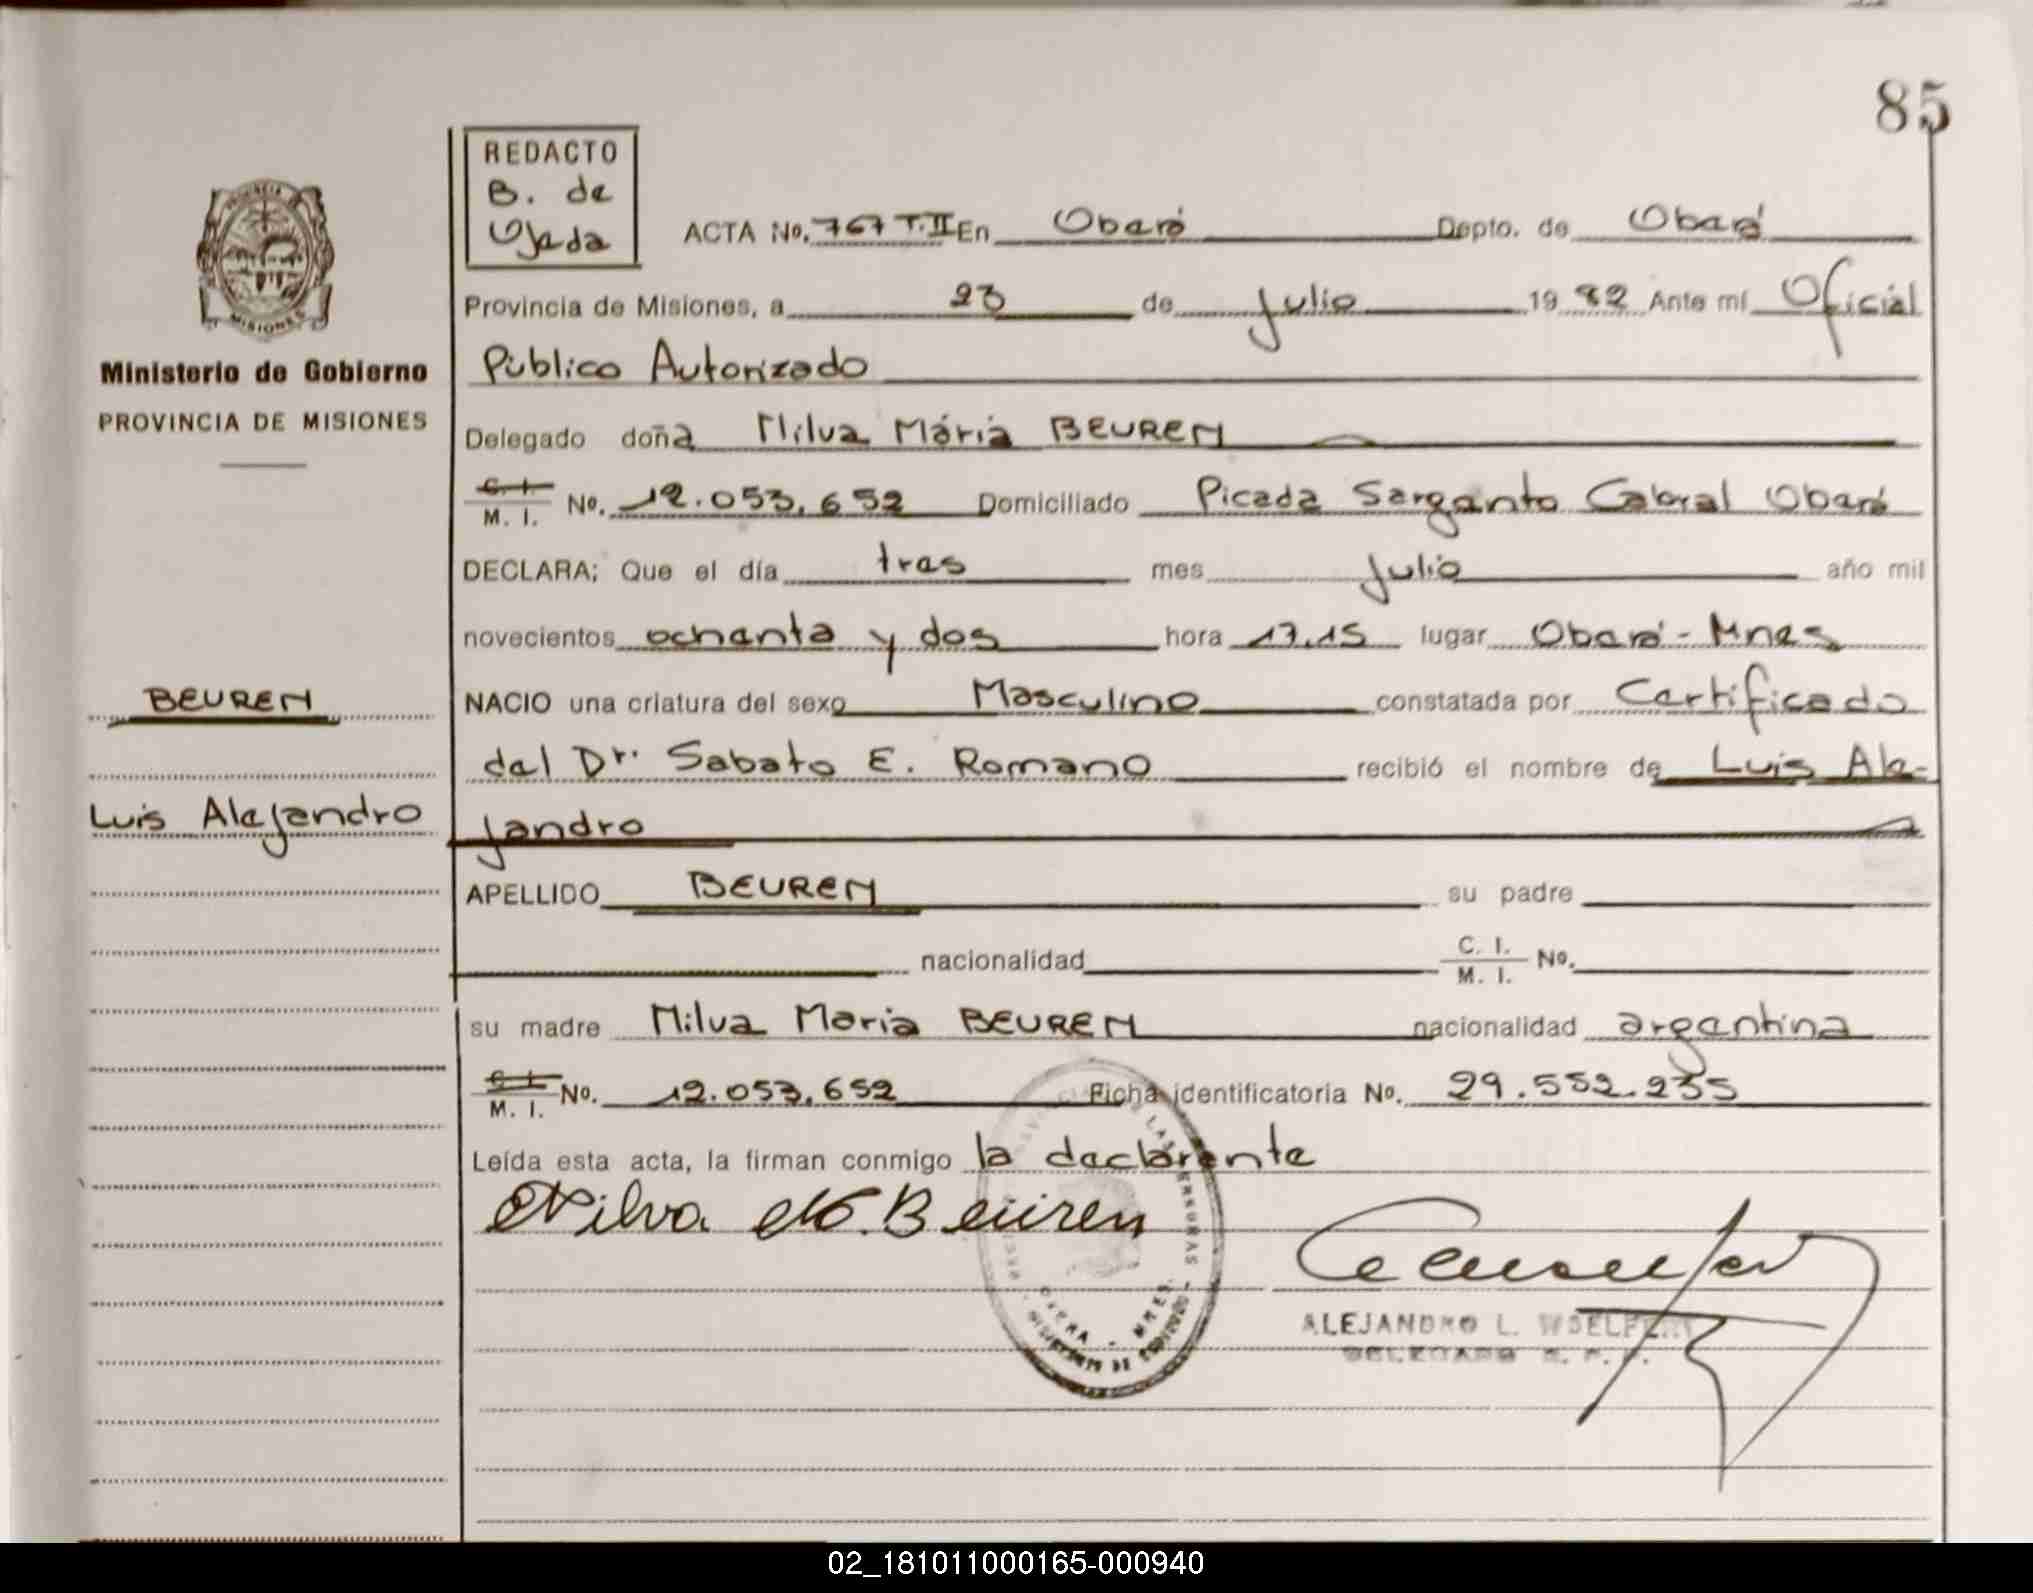 85
REDACTO
B. de
Ojeda
ACTA No. 767 T.II En Oberá Depto. de Oberá
Provincia de Misiones, a 23 de Julio 19 82 Ante mí Oficial
Público Autorizado
Delegado doña Milva María BEUREN
C. I. / M. I. No. 12.053.652 Domiciliado Picada Sargento Cabral Oberá
DECLARA; Que el día tres mes Julio año mil
novecientos ochenta y dos hora 17.15 lugar Oberá - Mnes
NACIO una criatura del sexo Masculino constatada por Certificado
del Dr. Sabato E. Romano recibió el nombre de Luis Ale-
jandro
APELLIDO BEUREN su padre
nacionalidad C. I. / M. I. No.
su madre Milva María BEUREN nacionalidad argentina
C. I. / M. I. No. 12.053.652 Ficha identificatoria No. 29.552.235
Leída esta acta, la firman conmigo la declarente
Milva M. Beuren
ALEJANDRO L. WOELFERT
DELEGADO
OBERA - MNES.
PROVINCIA
MISIONES
Ministerio de Gobierno
PROVINCIA DE MISIONES
BEUREN
Luis Alejandro
02_181011000165-000940